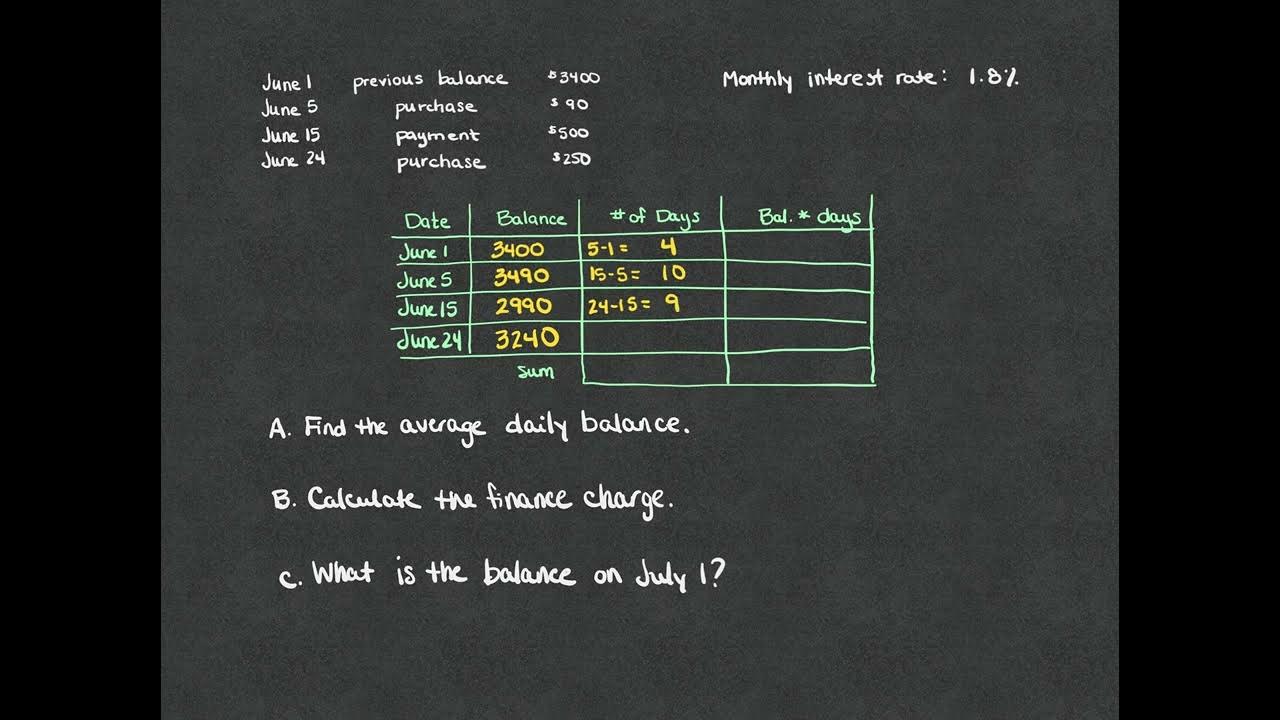 June 1 previous balance $3400 Monthly interest rate: 1.8%
June 5 purchase $90
June 15 payment $500
June 24 purchase $250
Date Balance # of Days Bal. * days
June 1 3400 5-1= 4
June 5 3490 15-5= 10
June 15 2990 24-15= 9
June 24 3240
sum
A. Find the average daily balance.
B. Calculate the finance charge.
C. What is the balance on July 1?